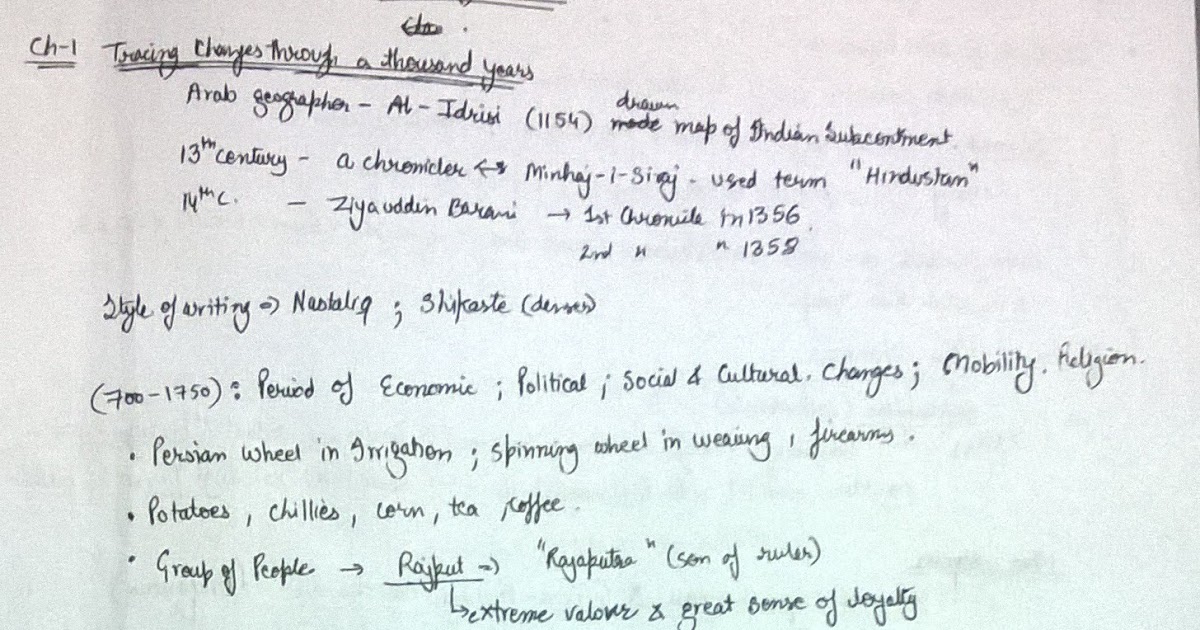 Ch-1 Tracing Changes through a thousand years
drawn
Arab geographer - Al-Idrisi (1154) made map of Indian Subcontinent.
13th century - a chronicler ↔ Minhaj-I-Siraj - used term "Hindustan"
14th C. - Ziyauddin Barani → 1st Chronicle in 1356.
2nd " " 1358
Style of writing ⇒ Nastaliq ; Shikaste (denser)
(700-1750) : Period of Economic ; Political ; Social & Cultural. Changes ; Mobility. Religion.
• Persian wheel in Irrigation ; Spinning wheel in weaving , firearms.
• Potatoes , chillies , corn , tea , coffee.
• Group of People → Rajput ⇒ "Rajaputra" (son of ruler)
↳ extreme valour & great sense of loyalty